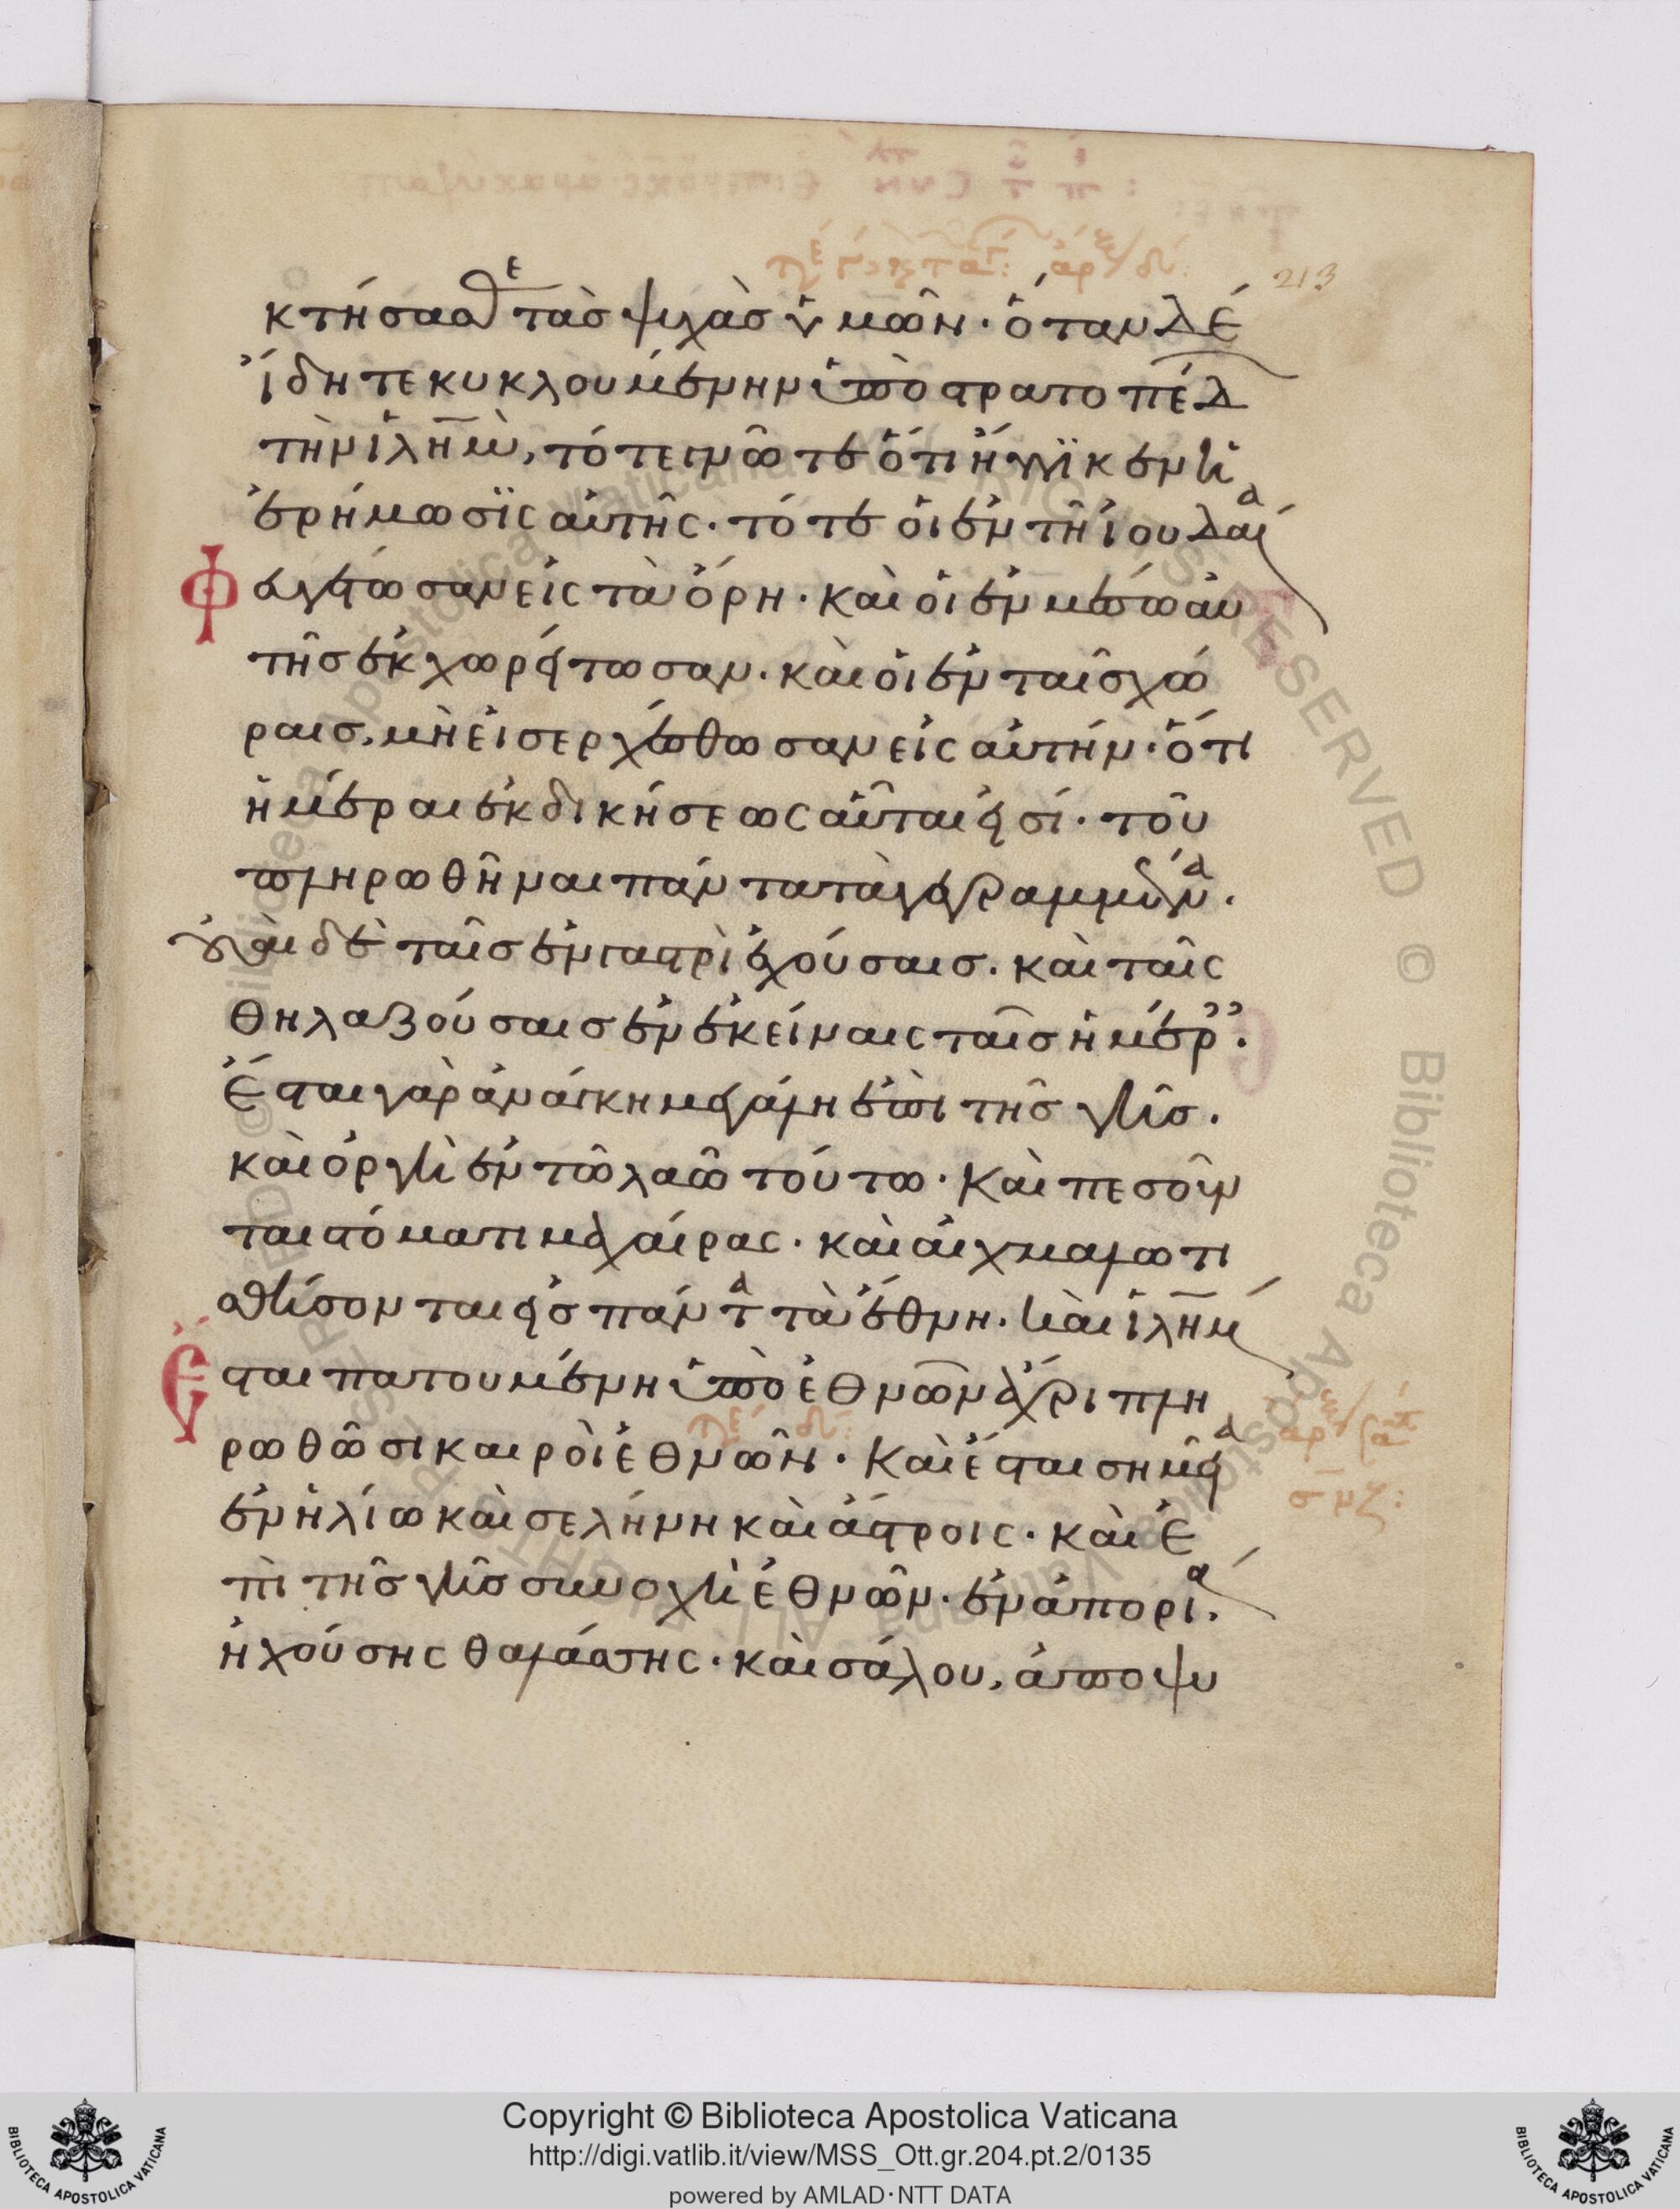 213
κτήσασθε τὰσ ψυχὰσ ὑμῶν· ὅταν δέ
ἴδητε κυκλουμένην ὑπὸ στρατοπέδ
τὴν ἱλῆμ, τότε γνῶτε ὅτι ἤγγϊκεν ἡ
ἐρήμωσϊς αὐτῆς· τότε οἱ ἐν τῆ ἰουδαία
φευγέτωσαν εἰς τὰ ὄρη· καὶ οἱ ἐν μέσω αὐ
τῆσ ἐκχωρείτωσαν· καὶ οἱ ἐν ταῖσ χώ
ραισ, μὴ εἰσερχέσθωσαν εἰς αὐτήν· ὅτι
ἡμέραι ἐκδικήσεως αὗται εἰσί· τοῦ
πληρωθῆναι πάντα τὰ γεγραμμένα·
οὐαὶ δὲ ταῖσ ἐν γαστρὶ ἐχούσαισ· καὶ ταῖς
θηλαζούσαισ ἐν ἐκείναις ταῖσ ἡμέρ·
ἔσται γὰρ ἀνάγκη μεγάλη ἐπὶ τῆσ γῆσ·
καὶ ὀργὴ ἐν τῶ λαῶ τούτω· Καὶ πεσοῦν
ται στόματι μαχαίρας· καὶ αἰχμαλωτι
σθήσονται εἰσ πάντα τὰ ἔθνη· καὶ ἱλῆμ
ἔσται πατουμένη ὑπὸ ἐθνῶν ἄχρι πλη
ρωθῶσι καιροὶ ἐθνῶν· Καὶ ἔσται σημεῖα
ἐν ἡλίω καὶ σελήνη καὶ ἄστροις· καὶ ἐ
πὶ τῆσ γῆσ συνοχὴ ἐθνῶν· ἐν ἀπορία·
ἠχούσης θαλάσσης· καὶ σάλου, ἀποψυ
Copyright © Biblioteca Apostolica Vaticana
http://digi.vatlib.it/view/MSS_Ott.gr.204.pt.2/0135
powered by AMLAD·NTT DATA
BIBLIOTECA APOSTOLICA VATICANA
BIBLIOTECA APOSTOLICA VATICANA